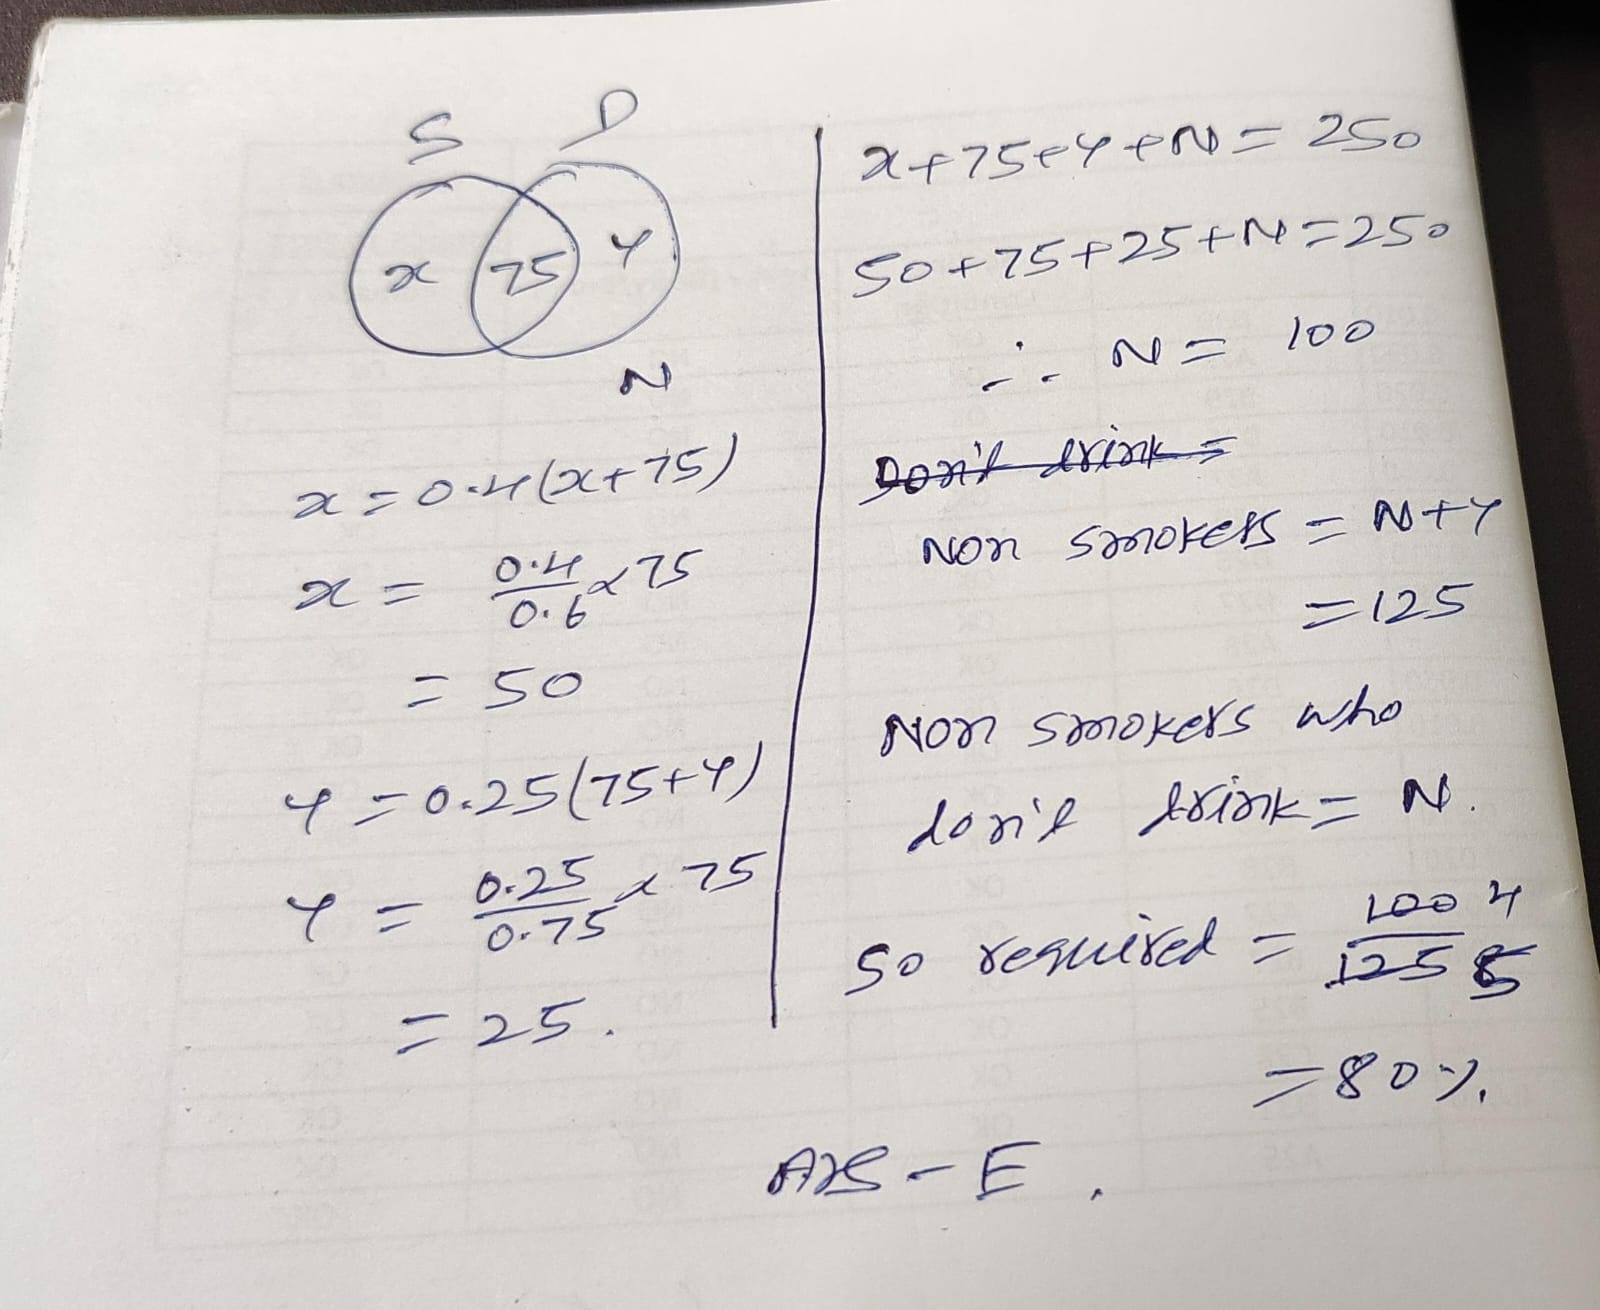 S D
x 75 y
N
x = 0.4(x+75)
x = 0.4/0.6 × 75
= 50
y = 0.25(75+y)
y = 0.25/0.75 × 75
= 25.
x+75+y+N = 250
50+75+25+N=250
∴ N = 100
Don't drink =
Non smokers = N+y
= 125
Non smokers who
don't drink = N.
So required = 100/125 4/5
= 80%.
Ans - E.